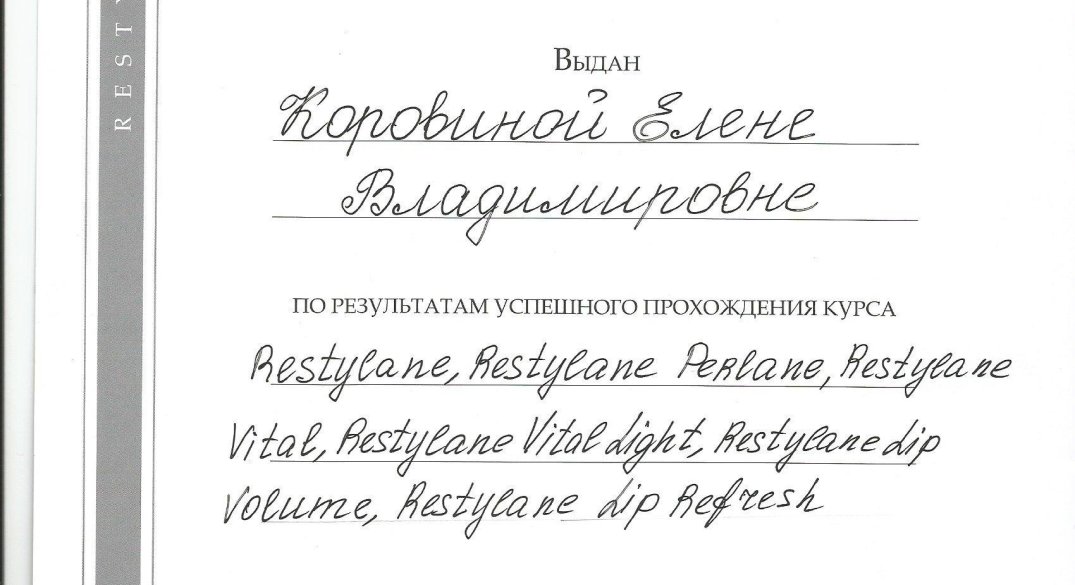 REST
Выдан
Коровиной Елене
Владимировне
ПО РЕЗУЛЬТАТАМ УСПЕШНОГО ПРОХОЖДЕНИЯ КУРСА
Restylane, Restylane Perlane, Restylane
Vital, Restylane Vital Light, Restylane Lip
Volume, Restylane Lip Refresh